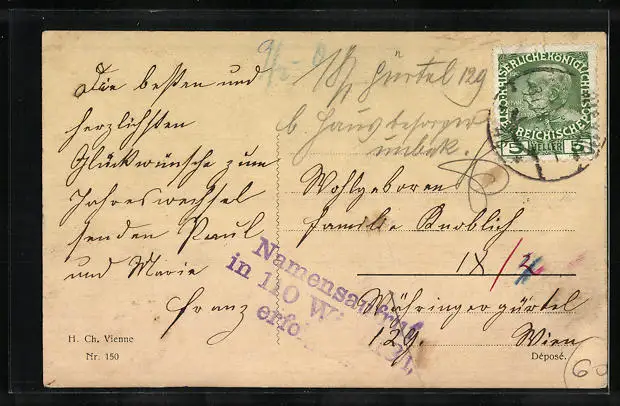 Die besten und
herzlichsten
Glückwünsche zum
Jahreswechsel
senden Paul
und Marie
Franz
H. Ch. Vienne
Nr. 150
18/ Gürtel 129
b. Hausbesorger
unbek.
KAISERLICHE KÖNIGLICHE ÖSTERREICHISCHE
5 HELLER 5
Wohlgeboren
Familie Knoblich
IX/4
Währingergürtel
129. Wien
Namensaufruf
in 110 W
erfol
Déposé.
60